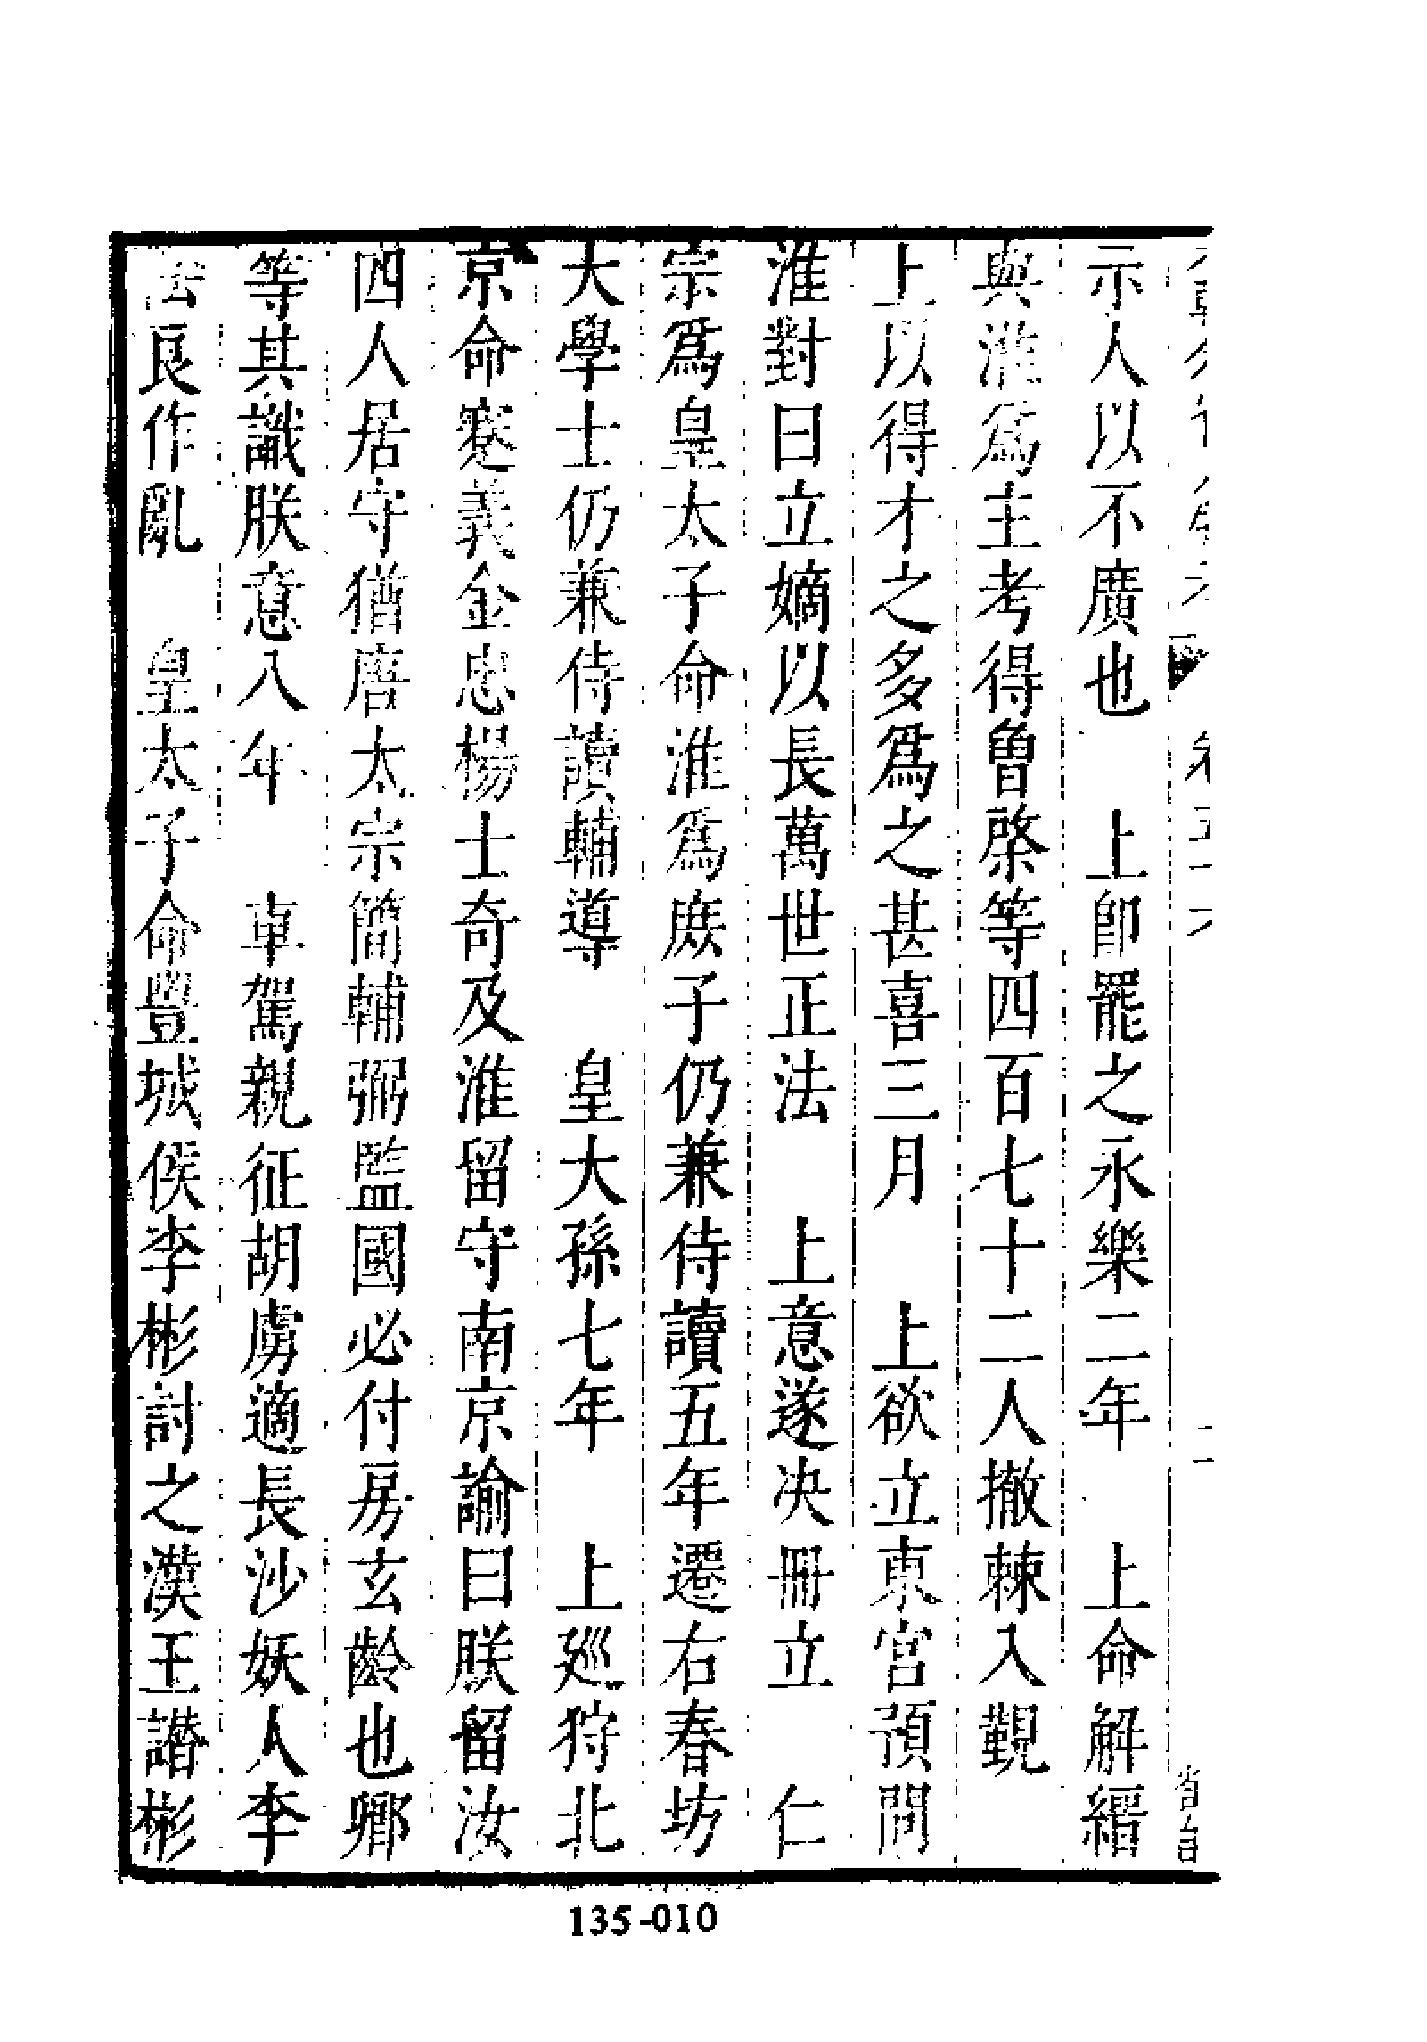 示人以不廣也　上卽罷之永樂二年　上命解縉
與淮爲主考得曾棨等四百七十二人撤棘入覲
上以得才之多爲之甚喜三月　上欲立東宮預問
淮對曰立嫡以長萬世正法　上意遂决冊立　仁
宗爲皇太子命淮爲庶子仍兼侍讀五年遷右春坊
大學士仍兼侍讀輔導　皇大孫七年　上廵狩北
京命蹇義金忠楊士奇及淮留守南京諭曰朕留汝
四人居守猶唐太宗簡輔弼監國必付房玄齡也卿
等其識朕意八年　車駕親征胡虜適長沙妖人李
法良作亂　皇太子命豐城侯李彬討之漢王譖彬
卷五十六
二
135-010